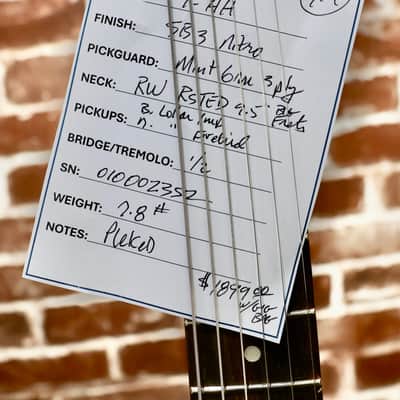 T-HH
FINISH: SB3 Nitro
PICKGUARD: Mint Grn 3 ply
NECK: RW RSTED 9.5 Big Frets
PICKUPS: B.
N. " Firebird
BRIDGE/TREMOLO: 1/2
SN: 010002352
WEIGHT: 7.8#
NOTES: Pleked
$1899.00
w/GIG
BAG